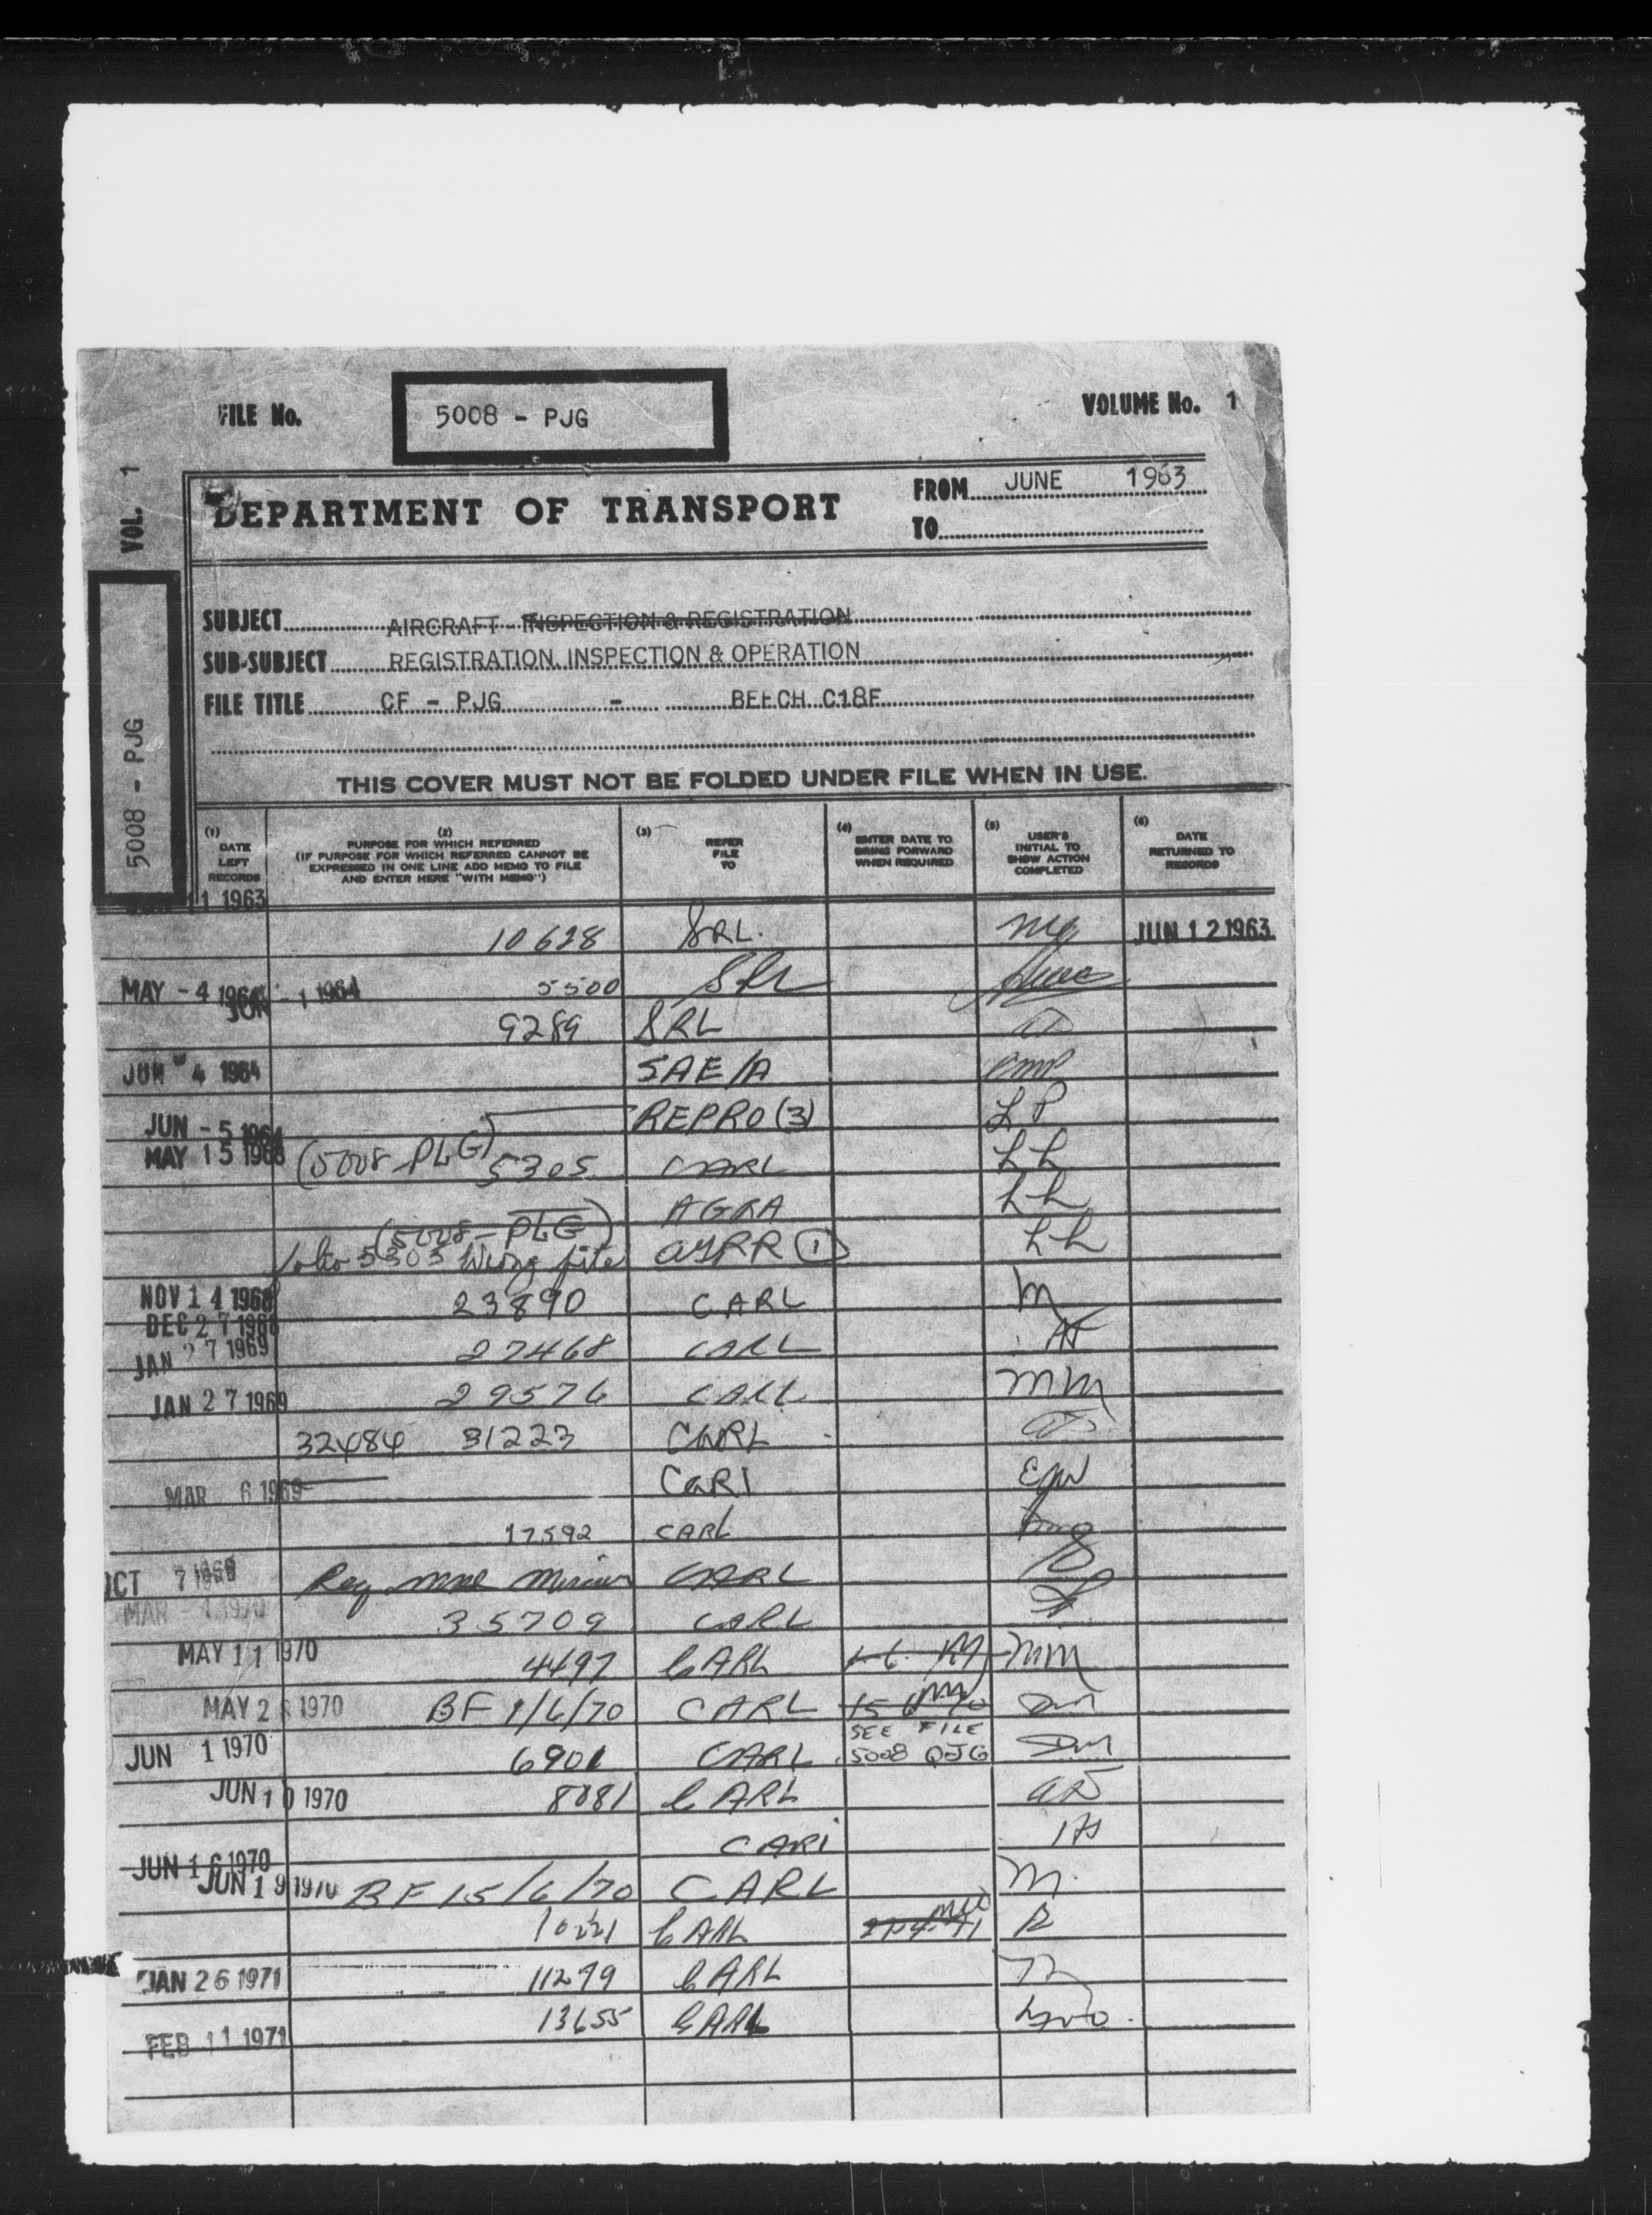 FILE No. 5008 - PJG VOLUME No. 1
VOL. 1
5008 - PJG
DEPARTMENT OF TRANSPORT
FROM JUNE 1963
TO
SUBJECT AIRCRAFT - INSPECTION & REGISTRATION
SUB-SUBJECT REGISTRATION, INSPECTION & OPERATION
FILE TITLE CF - PJG - BEECH C18F
THIS COVER MUST NOT BE FOLDED UNDER FILE WHEN IN USE.
(1) DATE LEFT RECORDS
(2) PURPOSE FOR WHICH REFERRED (IF PURPOSE FOR WHICH REFERRED CANNOT BE EXPRESSED IN ONE LINE ADD MEMO TO FILE AND ENTER HERE "WITH MEMO")
(3) REFER FILE TO
(4) ENTER DATE TO BRING FORWARD WHEN REQUIRED
(5) USER'S INITIAL TO SHOW ACTION COMPLETED
(6) DATE RETURNED TO RECORDS
11 1963
10628 SRL. JUN 12 1963
MAY -4 1964 5500
JUN -1 1964
9289 SRL
JUN 4 1964 SAE/A
JUN -5 1964 REPRO (3) LP
MAY 15 1968 (5008 PLG) 5305 CARL LL
AGRA LL
(5008-PLG)
5303 Wrong file AGRR (1) LL
NOV 14 1968 23890 CARL M
DEC 27 1968
JAN 27 1969 27468 CARL
JAN 27 1969 29576 CARL MM
32484 31223 CARL
MAR 6 1969 CARL
17592 CARL
OCT 7 1969 Req CARL
MAR -4 1970 35709 CARL
MAY 11 1970 4497 CARL MM
MAY 2 1970 BF 1/6/70 CARL
SEE FILE
JUN 1 1970 6901 CARL 5008 QJG
JUN 10 1970 8081 CARL
JUN 16 1970 CARL
JUN 19 1970 BF 15/6/70 CARL M.
10221 CARL
JAN 26 1971 11299 CARL
FEB 11 1971 13655 CARL